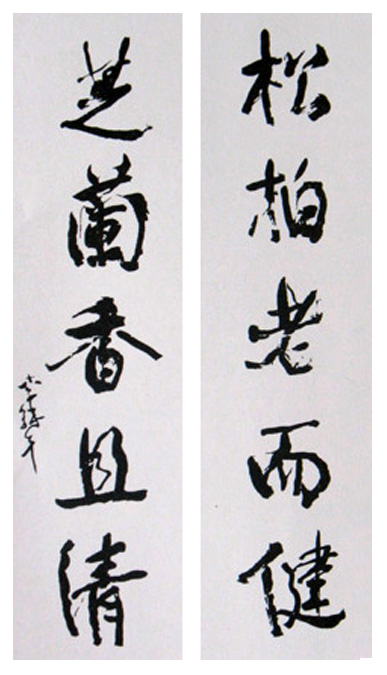 松柏老而健
芝蘭香且清